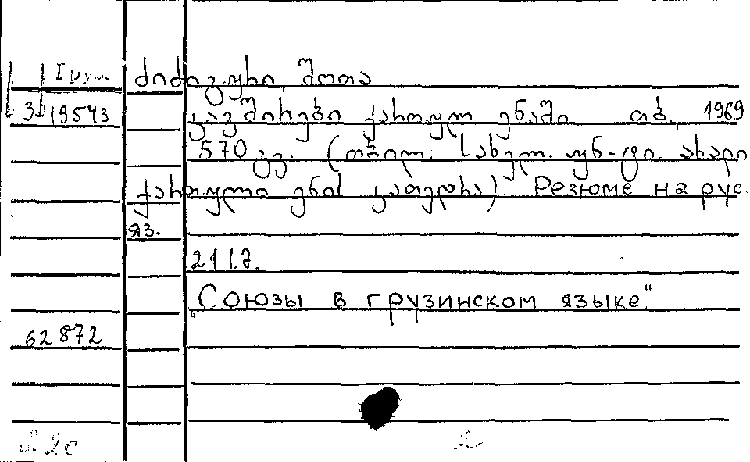 Груз ძიძიგური შოთა
3 19543 კავშირები ქართულ ენაში. თბ. 1969
570 გვ. (თბილ. სახელ. უნ-ტი. ახალი
ქართული ენის კათედრა) Резюме на рус.
яз.
"Союзы в грузинском языке"
62872